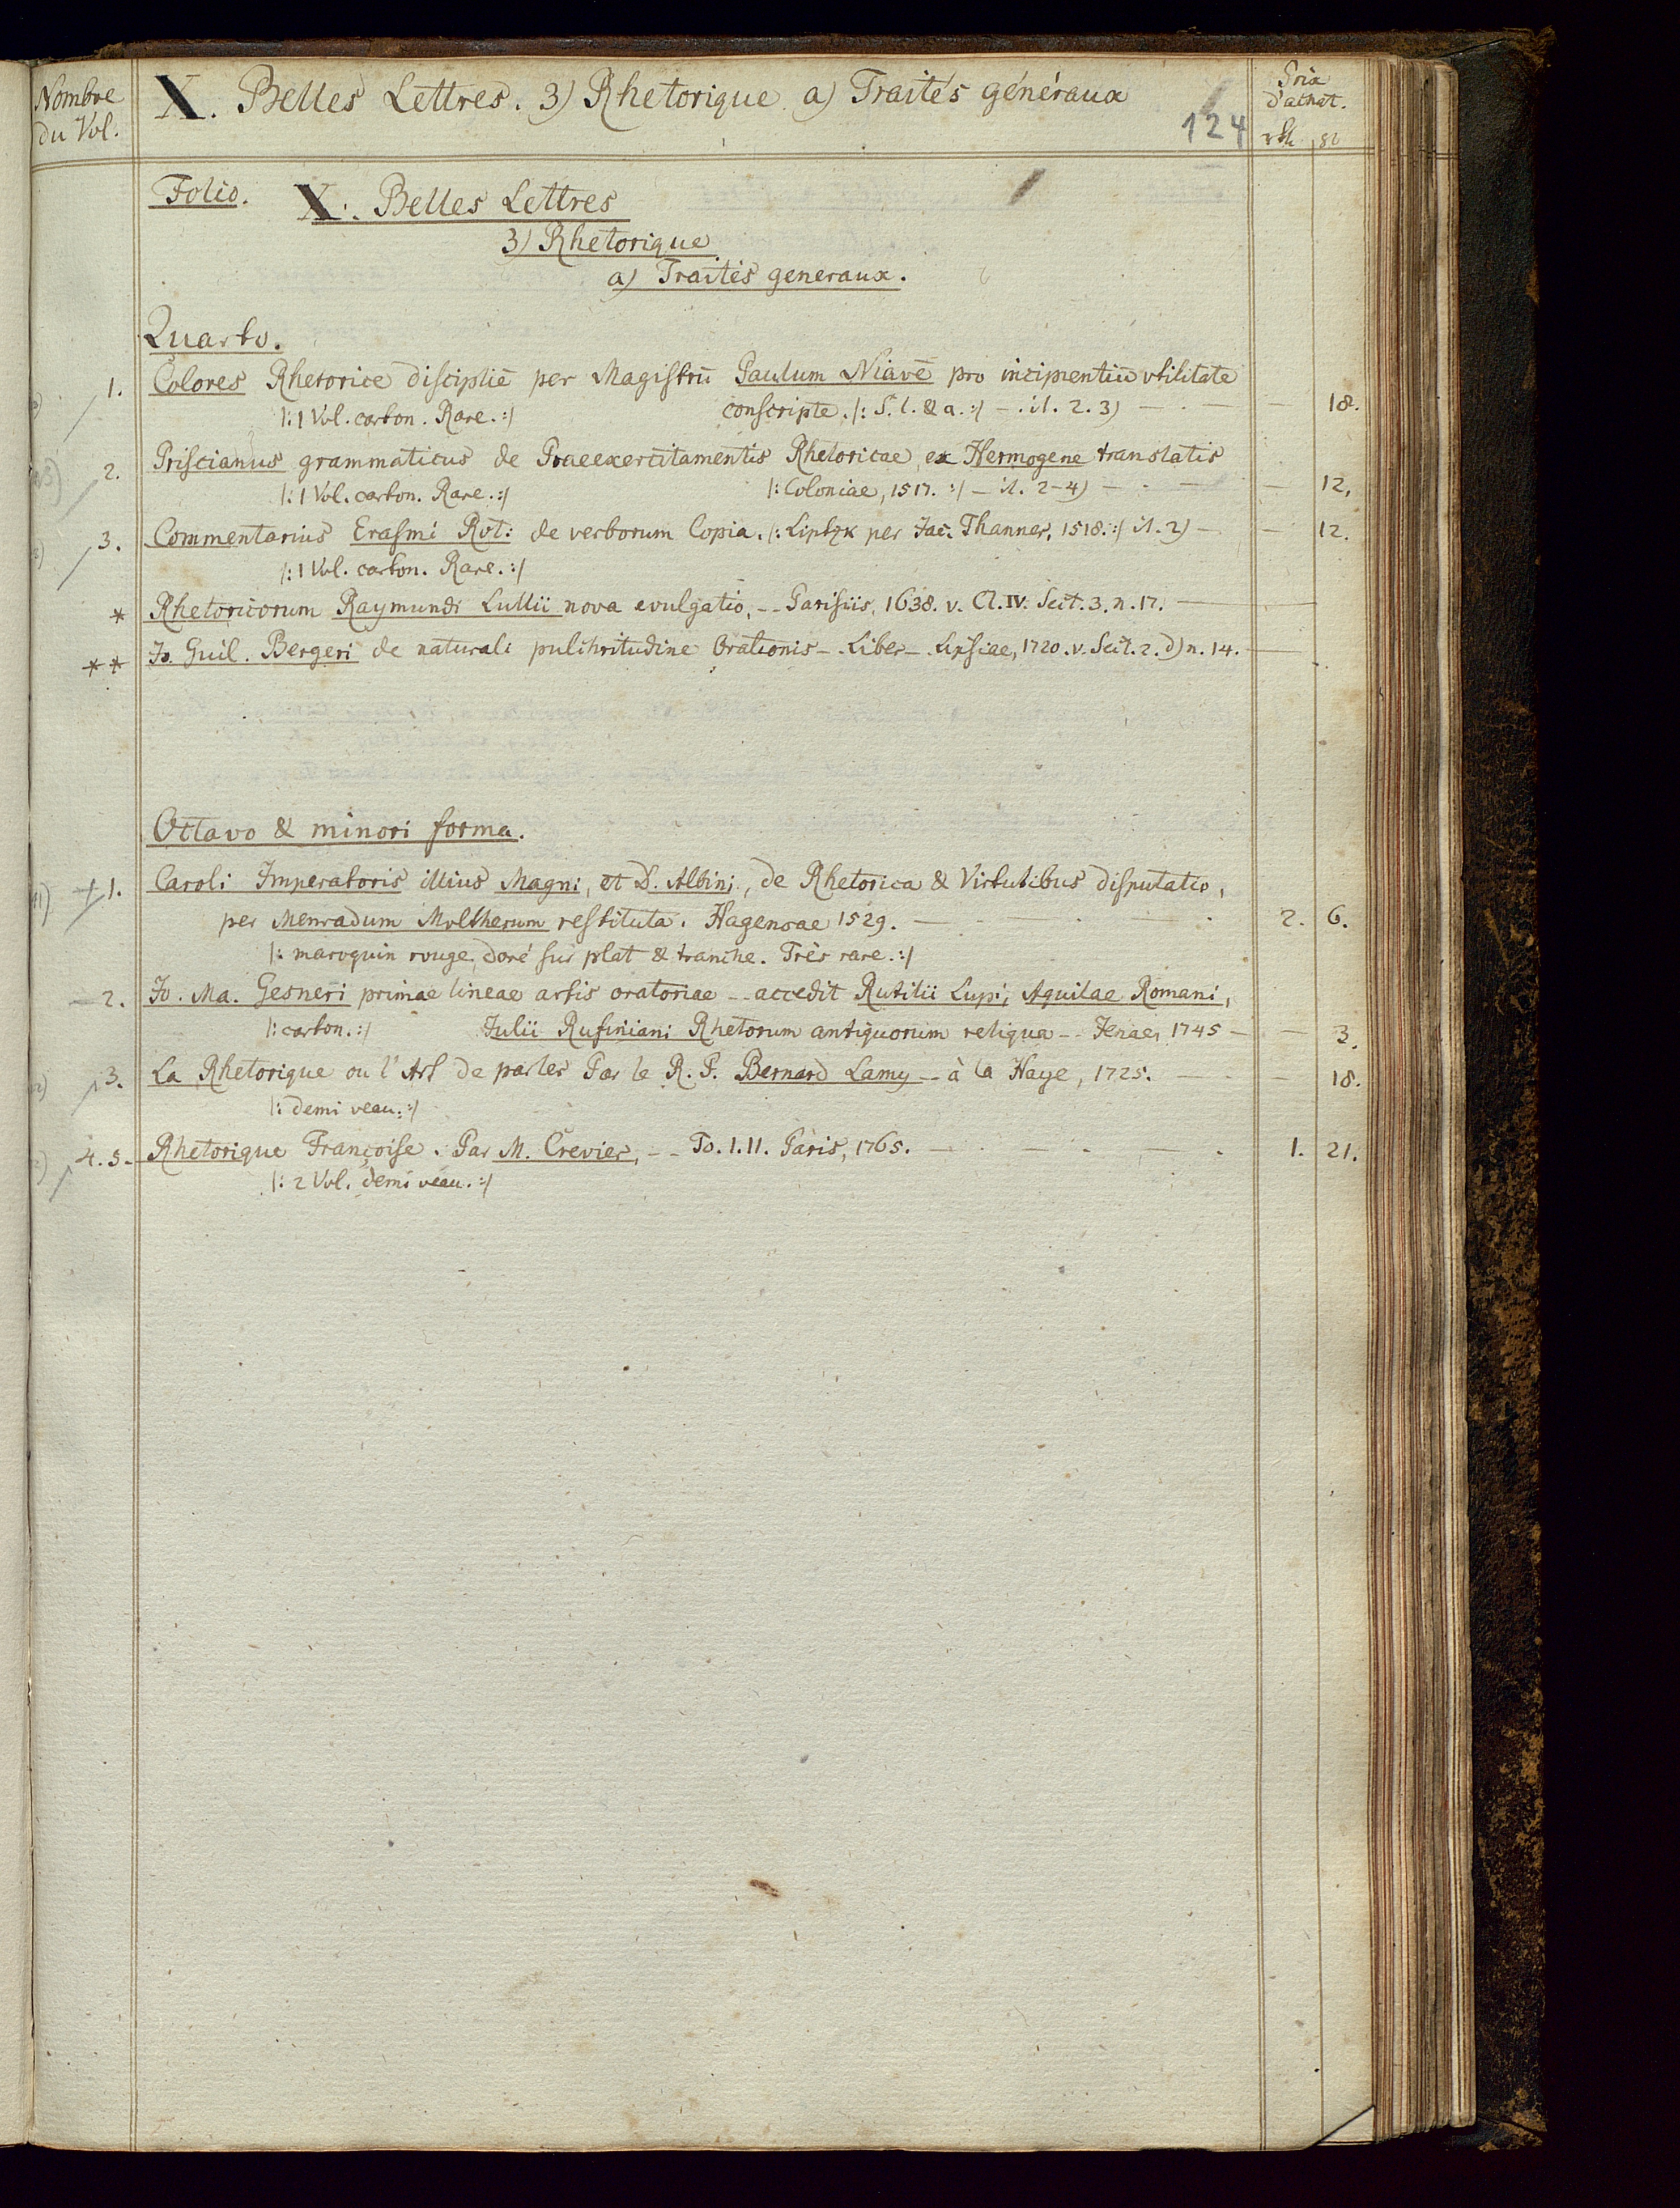 Nombre du Vol.
X. Belles Lettres. 3) Rhetorique. a) Traités généraux
124
Prix d'achat.
Folio. X. Belles Lettres
3) Rhetorique
a) Traités generaux.
Quarto.
1. Colores Rhetorice discipliē per Magistrū Paulum Niavē pro incipientiū vtilitate
|: 1 Vol. carton. Rare. :| conscripte. |: S. l. & a. :| 18.
2. Priscianus grammaticus de Praeexercitamentis Rhetoricae, ex Hermogene translatis
|: 1 Vol. carton. Rare. :| |: Coloniae, 1517. :| 2-4) 12.
3. Commentarius Erasmi Rot: de verborum Copia. |: Liptzk per Jac. Thanner, 1518. :| 2) 12.
|: 1 Vol. carton. Rare. :|
* Rhetoricorum Raymundi Lullii nova evulgatio, -- Parisiis, 1638. v. Cl. IV. Sect. 3. n. 17.
** Jo. Guil. Bergeri de naturali pulchritudine Orationis -- Liber -- Lipsiae, 1720. v. Sect. 2. d) n. 14.
Octavo & minori forma.
1. Caroli Imperatoris illius Magni, et D. Albini, de Rhetorica & Virtutibus disputatio,
per Menradum Moltherum restituta. Hagenoae 1529. 2. 6.
|: maroquin rouge, doré sur plat & tranche. Très rare. :|
2. Jo. Ma. Gesneri primae lineae artis oratoriae -- accedit Rutilii Lupi, Aquilae Romani,
|: carton. :| Julii Rufiniani Rhetorum antiquorum reliqua -- Jenae, 1745 3.
3. La Rhetorique ou l'Art de parler Par le R. P. Bernard Lamy -- à la Haye, 1725. 18.
|: demi veau. :|
4. 5. Rhetorique Françoise. Par M. Crevier, -- To. I. II. Paris, 1765. 1. 21.
|: 2 Vol. demi veau. :|